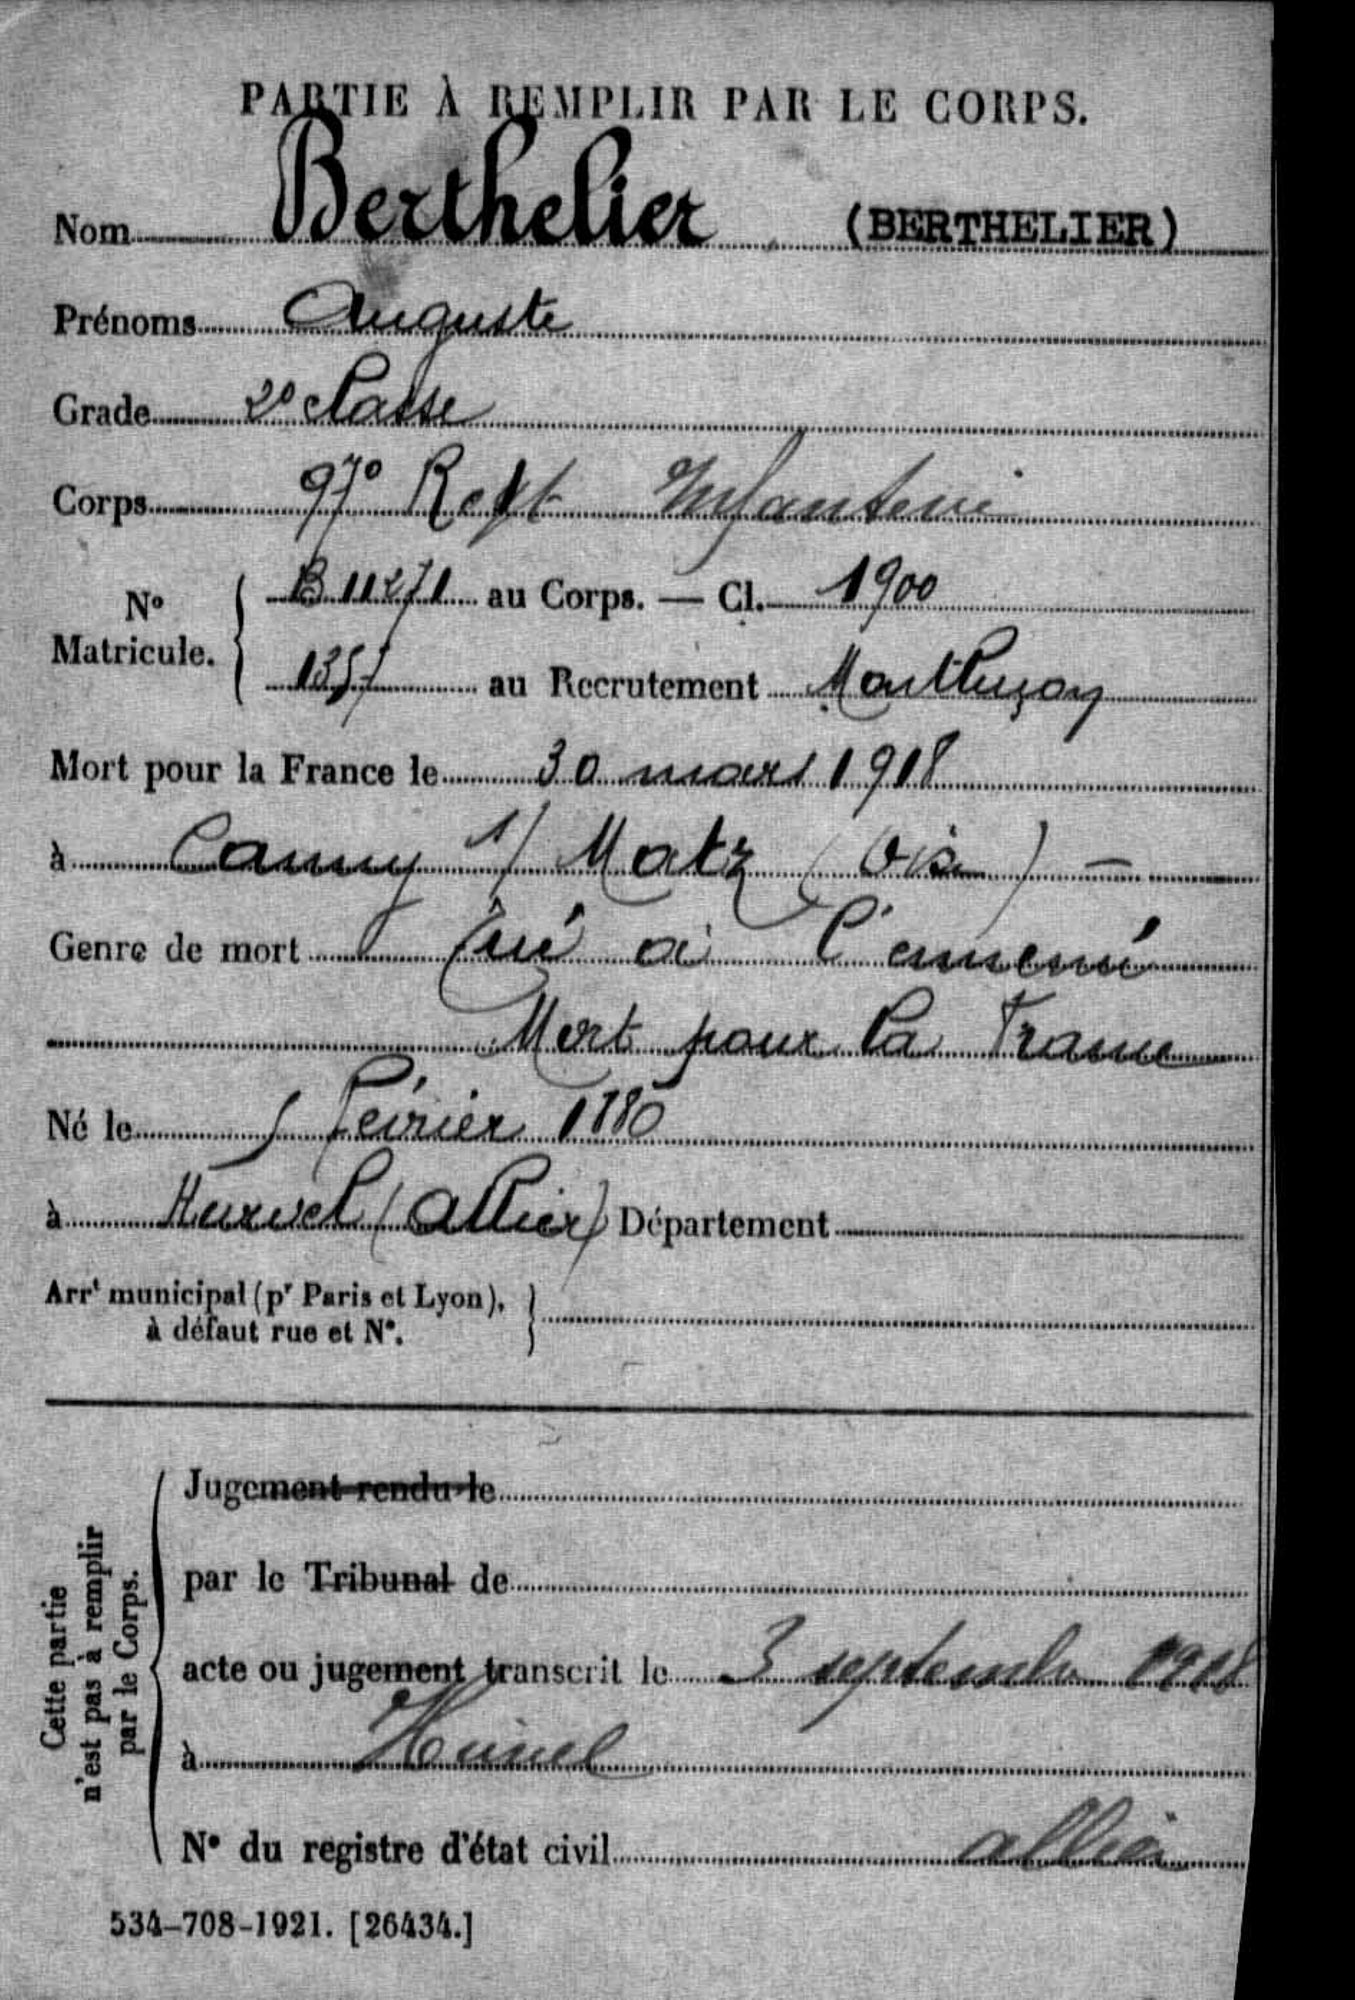 PARTIE À REMPLIR PAR LE CORPS.
Nom Berthelier (BERTHELIER)
Prénoms Auguste
Grade 2e classe
Corps 97e Regt Infanterie
No Matricule. B 11271 au Corps. — Cl. 1900
1357 au Recrutement Montluçon
Mort pour la France le 30 mars 1918
à Canny s/ Matz (Oise) —
Genre de mort Tué à l'ennemi
Mort pour la France
Né le 5 février 1880
à Huriel (Allier) Département
Arrt municipal (pr Paris et Lyon),
à défaut rue et N°.
Cette partie
n'est pas à remplir
par le Corps.
Jugement rendu le
par le Tribunal de
acte ou jugement transcrit le 3 septembre 1918
à Huriel
N° du registre d'état civil Allier
534-708-1921. [26434.]